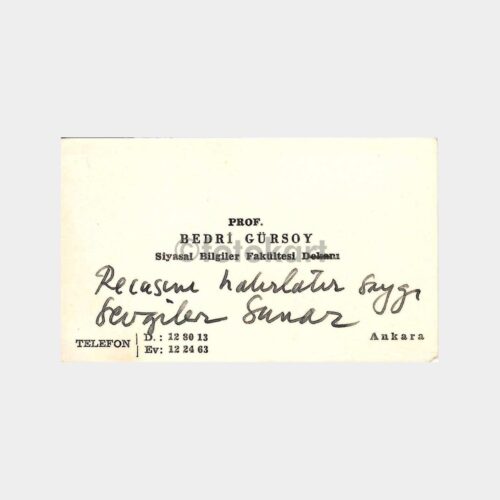 PROF.
BEDRİ GÜRSOY
Siyasal Bilgiler Fakültesi Dekanı
©fotokart
Recasını hatırlatır saygı
Sevgiler Sunar
TELEFON
D. : 12 80 13
Ev: 12 24 63
Ankara